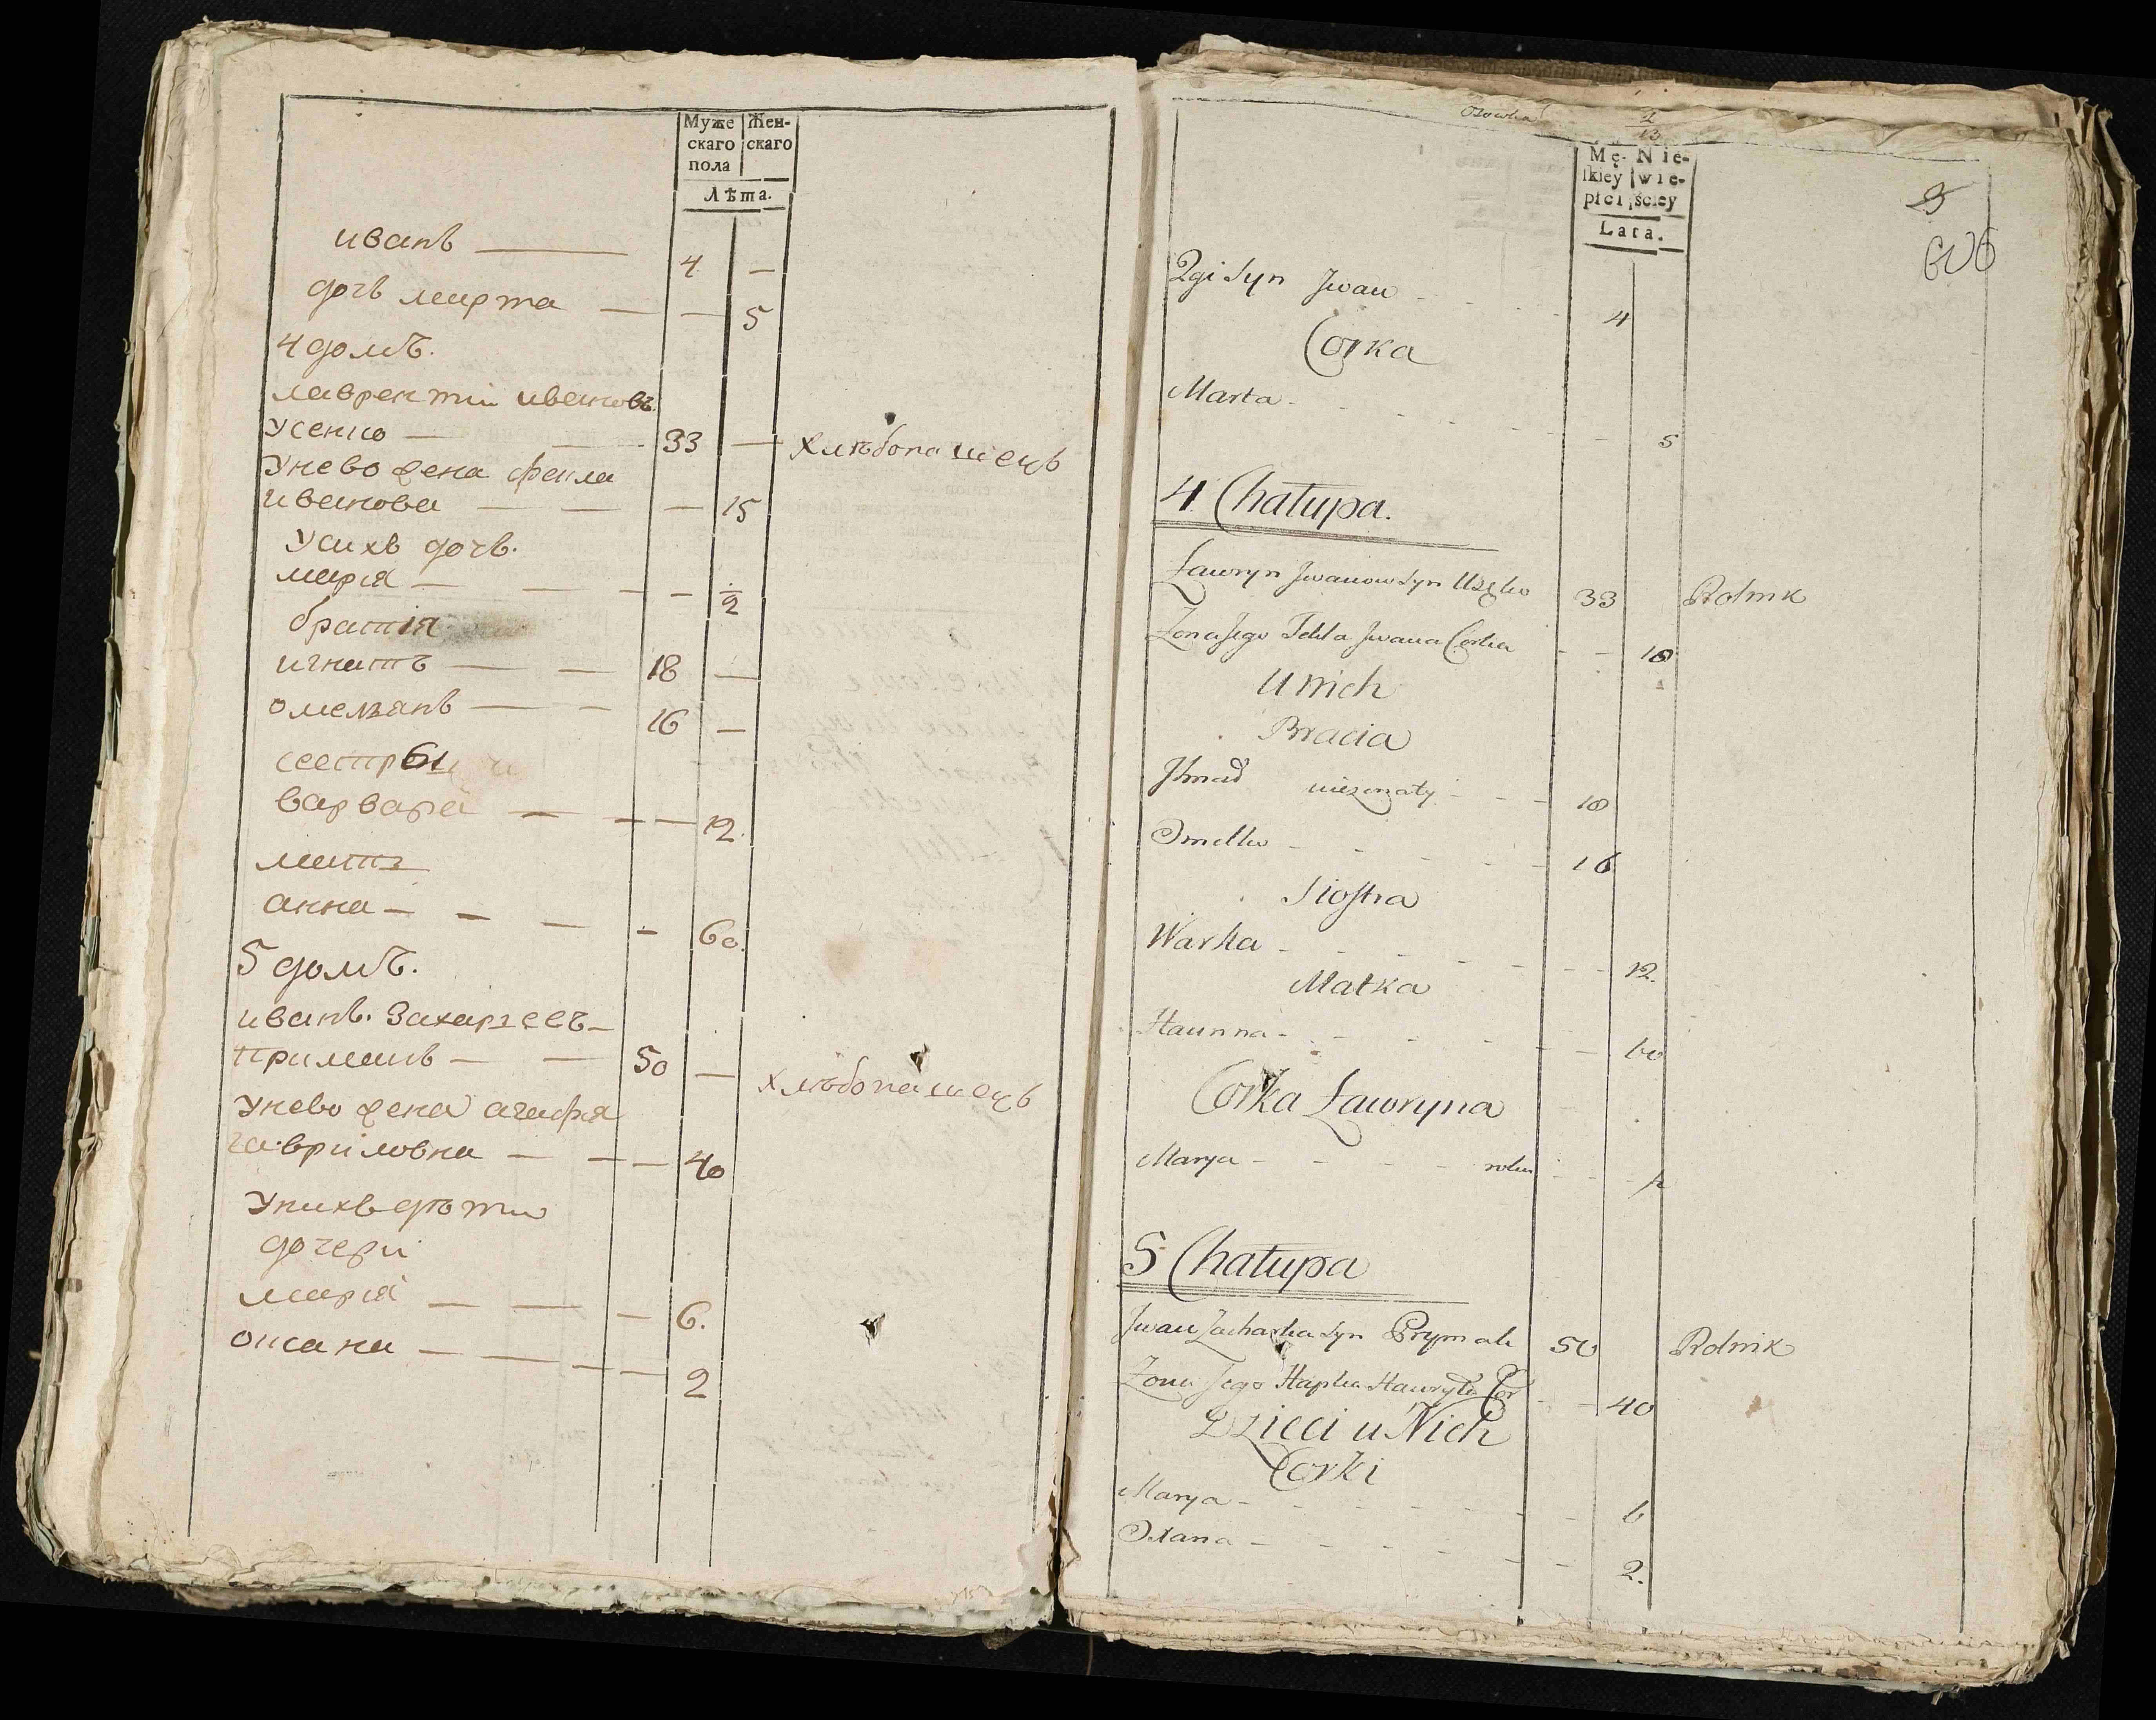 Муже Жен-
скаго скаго
пола
Лѣта.
иванъ 4 —
дочь марта — — 5
4 домъ.
лаврентии ивановъ.
усенко — — 33 — хлѣбопашецъ
унево жена фекла
иванова — — — 15
Усихъ дочь.
марiя — — — — ½
братiя
игнатъ — — 18 —
омельянъ — — 16 —
сестры
варвара — — — 12.
мать
анна — — — — 60.
5 домъ.
иванъ. Захарьевъ —
примакъ — — 50 — хлѣбопашецъ
унево жена агафия
гавриловна — — — 40
Унихъ дѣти
дочери
марiя — — — 6.
оксана — — — — 2
2
13
Mę- Nie-
ſkiey wie-
płci ściey
Lata.
606
2gi Syn Jwan 4
Corka
Marta 5
4 Chałupa.
Ławryn Jwanow Syn 33 Rolnik
Zona Jego Tekla Jwana Corka
U nich
Bracia
Jhnad niezonaty 18
Omelko 16
Siostra
Warka 12.
Matka
Hanna 60
Corka Ławryna
Marya roku ½
5 Chałupa
Jwan Zacharka Syn Prymak 50 Rolnik
Zona Jego Hapka Hawryła Cor 40
Dzieci u Nich
Corki
Marya 6
Oxana 2.